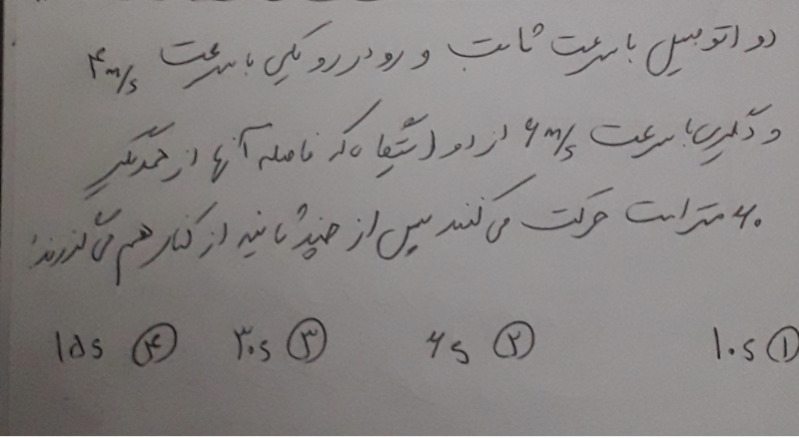 دو اتومبیل با سرعت ثابت و رو در رو یکی با سرعت ۴ m/s
و دگیری با سرعت ۶ m/s از دو ایستگاه که فاصله آنها از همدیگر
۶۰ متر است حرکت می کنند پس از چند ثانیه از کنار هم می گذرند؛
۱ ۱۰s ۲ ۶s ۳ ۳۰s ۴ ۱۵s